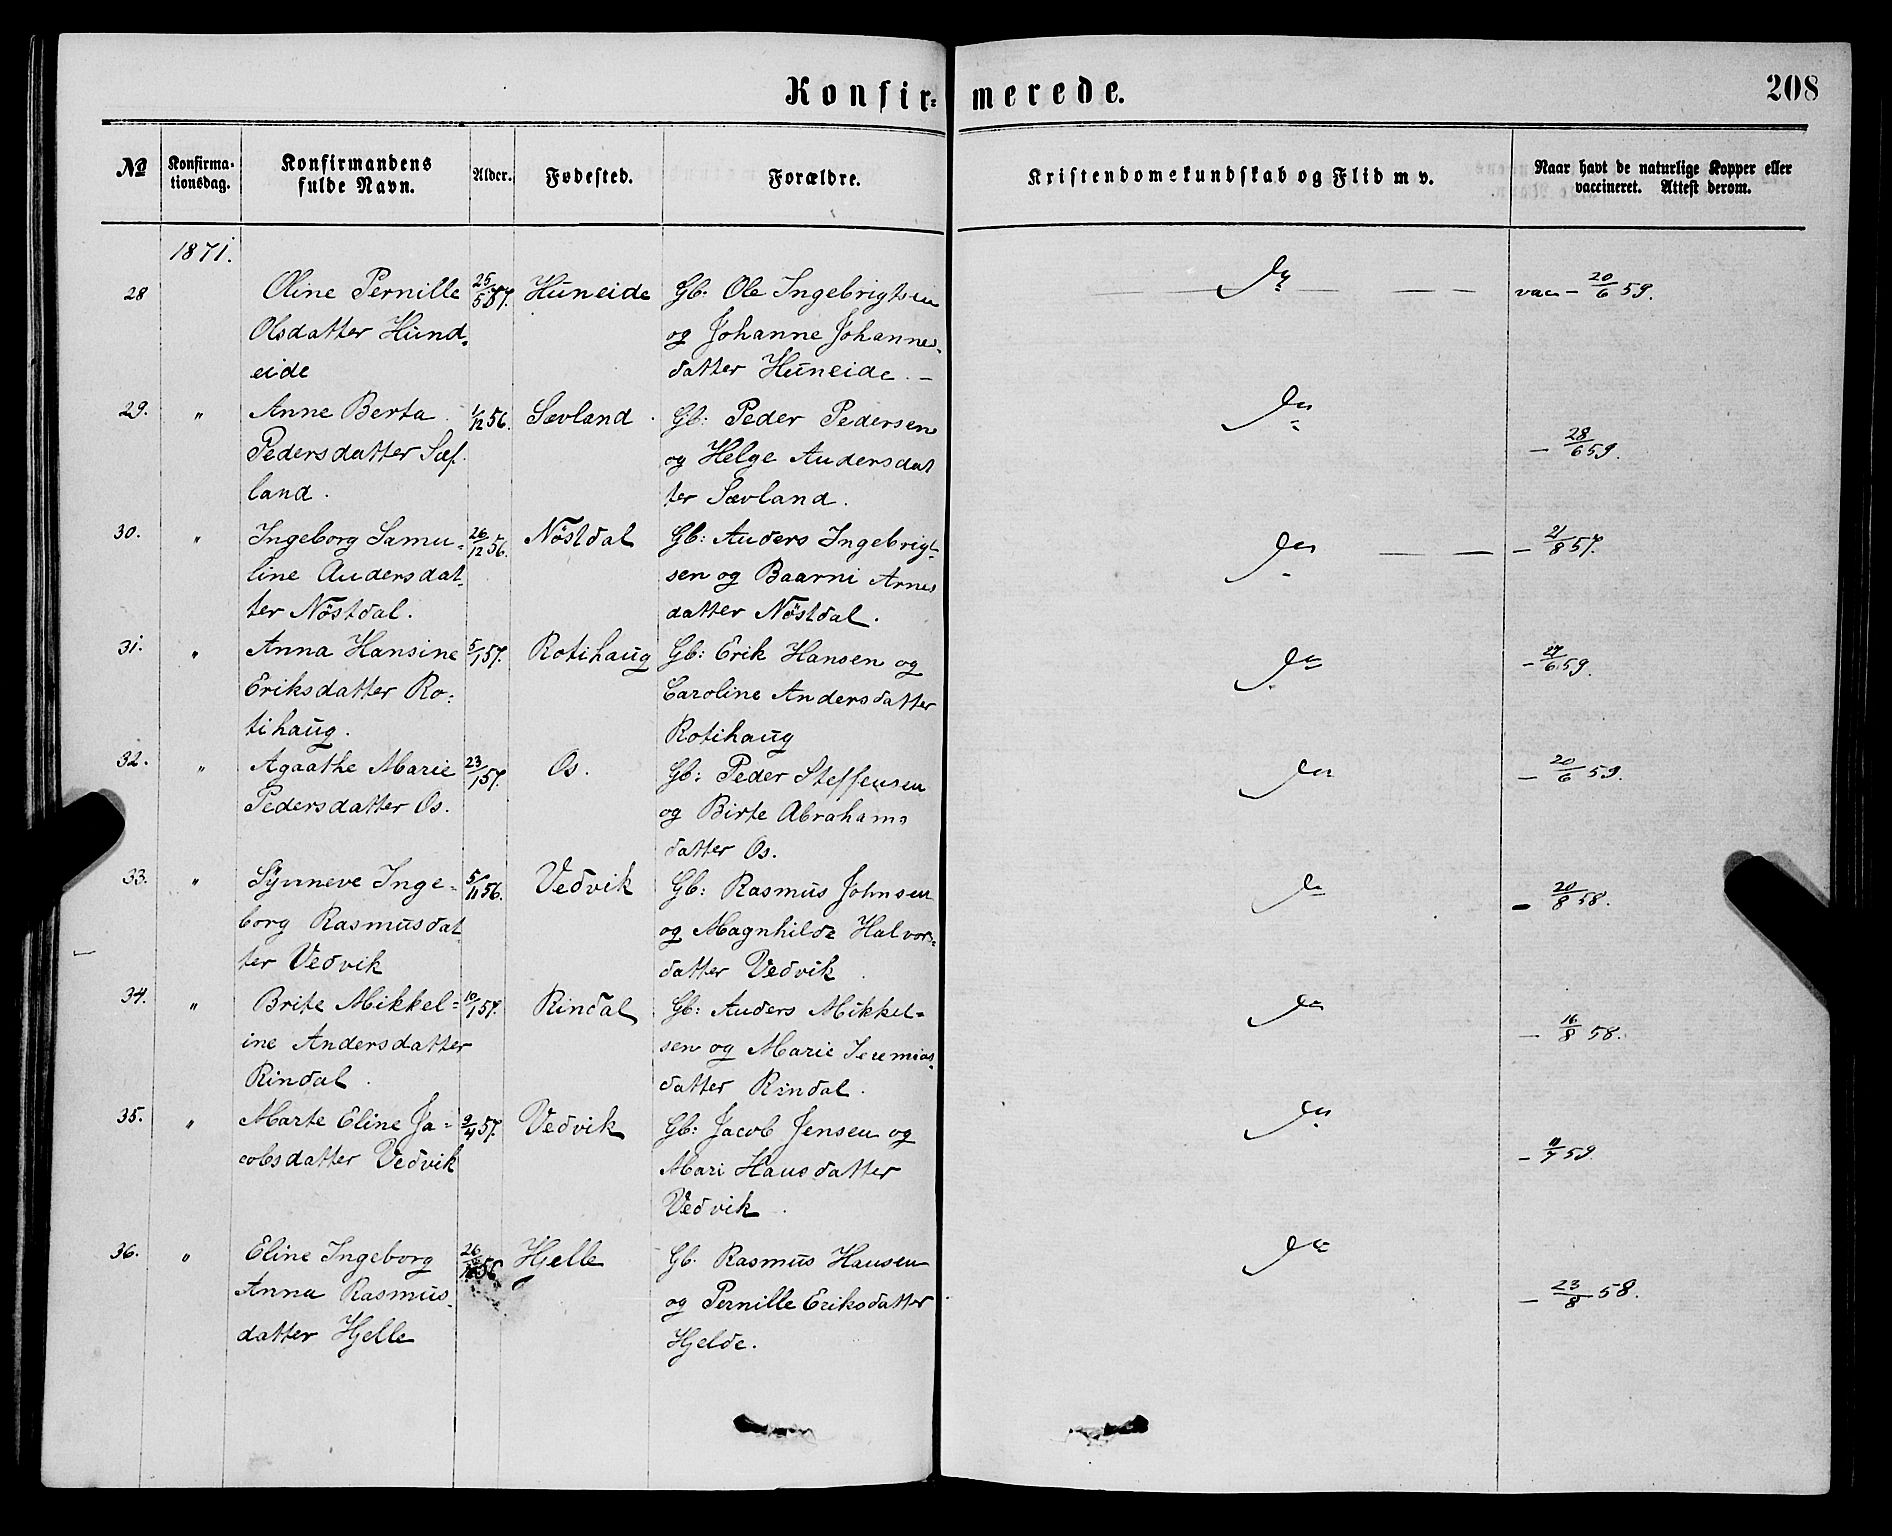 Konfir= merede.
208
№
Konfirma-
tionsdag.
Konfirmandens
fulde Navn.
Alder.
Fødested.
Forældre.
Kristendomskundskab og Flid m v.
Naar havt de naturlige Kopper eller
vaccineret. Attest derom.
1871.
28 Oline Pernille 25/5 57. Huneide Gb. Ole Ingebrigtsen Do vac - 20/6 59.
Olsdatter Hund- og Johanne Johannes-
eide datter Huneide. -
29. " Anne Berta 1/12 56. Sævland. Gb: Peder Pedersen Do
Pedersdatter Sæf- og Helge Andersdat - 28/6 59.
land. ter Sævland.
30. " Ingeborg Samu- 26/12 56. Nöstdal Gb: Anders Ingebrigt- Do - 21/8 57.
line Andersdat- sen og Baarni Arnes
ter Nöstdal. datter Nöstdal.
31. " Anna Hansine 5/1 57. Rotihaug Gb: Erik Hansen og Do - 27/6 59.
Eriksdatter Ro- Caroline Andersdatter
tihaug. Rotihaug
32. " Agaathe Marie 23/1 57. Os. Gb: Peder Steffensen Do - 20/6 59.
Pedersdatter Os. og Birte Abrahams
datter Os.
33. " Synneve Inge- 5/11 56. Vedvik Gb: Rasmus Johnsen Do - 20/8 58.
borg Rasmusdat- og Magnhilde Halvors-
ter Vedvik datter Vedvik
34. " Brite Mikkel= 10/1 57. Rindal Gb: Anders Mikkel= Do - 16/8 58.
ine Andersdatter sen og Marie Jeremias-
Rindal. datter Rindal.
35. " Marte Eline Ja- 9/4 57. Vedvik Gb: Jacob Jensen og Do - 11/7 59.
cobsdatter Vedvik Mari Hansdatter
Vedvik.
36. " Eline Ingeborg 26/12 56. Hjelle Gb. Rasmus Hansen Do
Anna Rasmus- og Pernille Eriksdatter - 23/8 58.
datter Hjelle Hjelde.